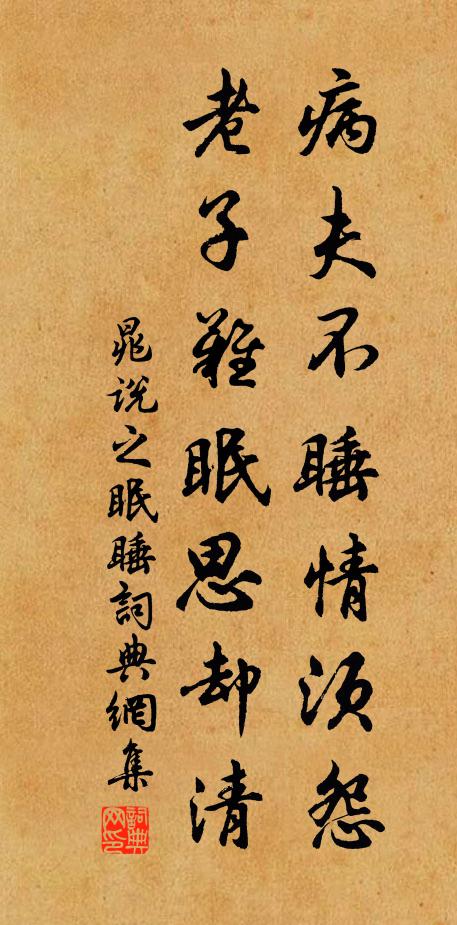 病夫不睡情須怨
老子難眠思却清
晁說之眠睡詞典網集
詞典网印